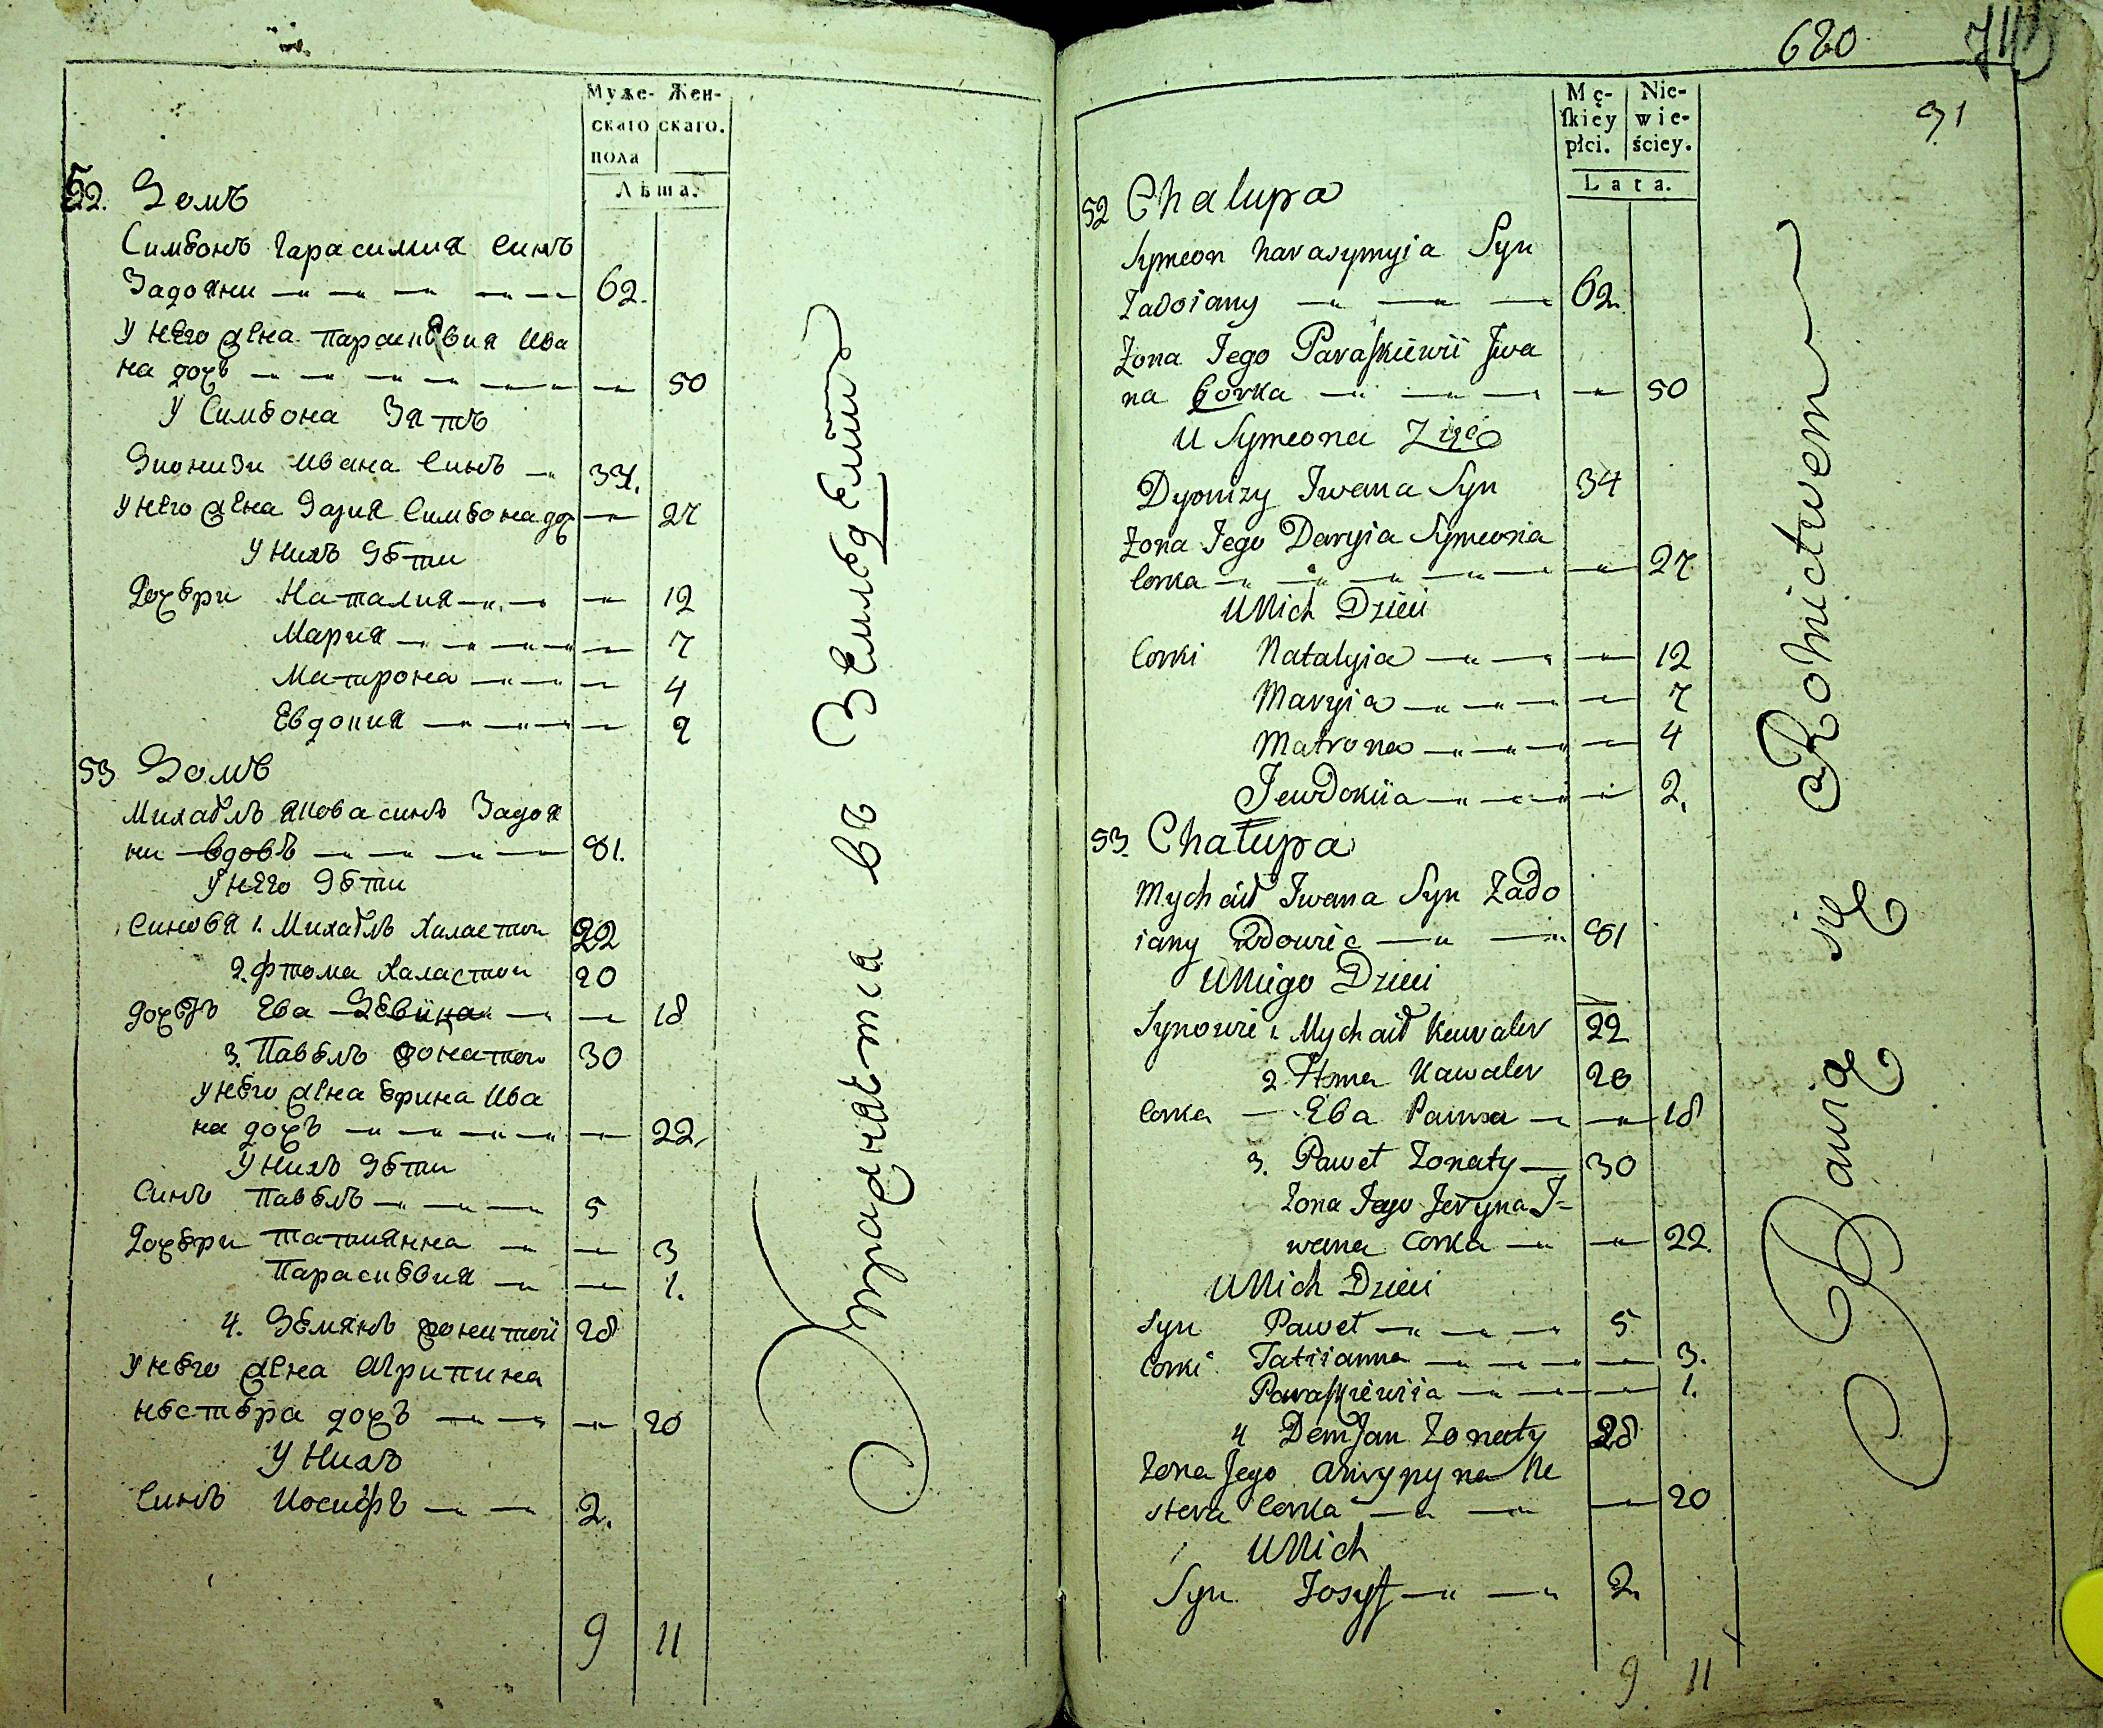 Муже- Жен-
скаго скаго.
пола
Лѣта.
52. Домъ
Симеонъ Гарасимия Синъ
Задояни 62.
У него жена Параскевия Ива
на дочъ 50
У Симеона Зять
Дионизи Ивана Синъ 34.
У него жена Дария Симеона доч 27
У нихъ Дѣти
Дочери Наталия 12
Мария 7
Матрона 4
Евдокия 2
53 Домъ
Михаѣлъ Якова синъ Задоя
ни вдовъ 81.
У него Дѣти
Синовя 1. Михаѣлъ Халастои 22
2. Фтома Халастои 20
дочеръ Ева Дѣвица 18
3. Павелъ жонатои 30
У него жена Ерина Ива
на дочъ 22.
У нихъ Дѣти
Синъ Павелъ 5
Дочери Татиянна 3
Параскевия 1.
4. Демянъ жонатой 28
У него жена Агрипина
Нестера дочъ 20
У нихъ
Синъ Иосифъ 2.
9 11
Упражняется въ Земледелии
620
91
Mę- Nie-
skiey wie-
płci. ściey.
Lata.
52 Chalupa
Symeon harasymyia Syn
Zadoiany 62.
Zona Jego Paraskiewii Jwa
na Corka 50
U Symeona Zięć
Dyonizy Iwana Syn 34
Zona Jego Daryia Symeona
Corka 27
U Nich Dzieci
Corki Natalyia 12
Maryia 7
Matrona 4
Jewdokiia 2.
53. Chałupa
Mychaił Iwana Syn Zado
iany Wdowiec 81
U Niego Dzieci
Synowie 1. Mychaił Kawaler 22
2. Ftoma Kawaler 20
Corka Ева Panna 18
3. Paweł Zonaty 30
Zona Jego Jeryna J-
wana Corka 22.
U Nich Dzieci
Syn Paweł 5
Corki Tatiianna 3.
Paraskiewiia 1.
4 Demjan Zonaty 28
Zona Jego Ahrypyna Ne
stera Corka 20
U Nich
Syn Iosyf 2.
9 11
Bawią się Rolnictwem